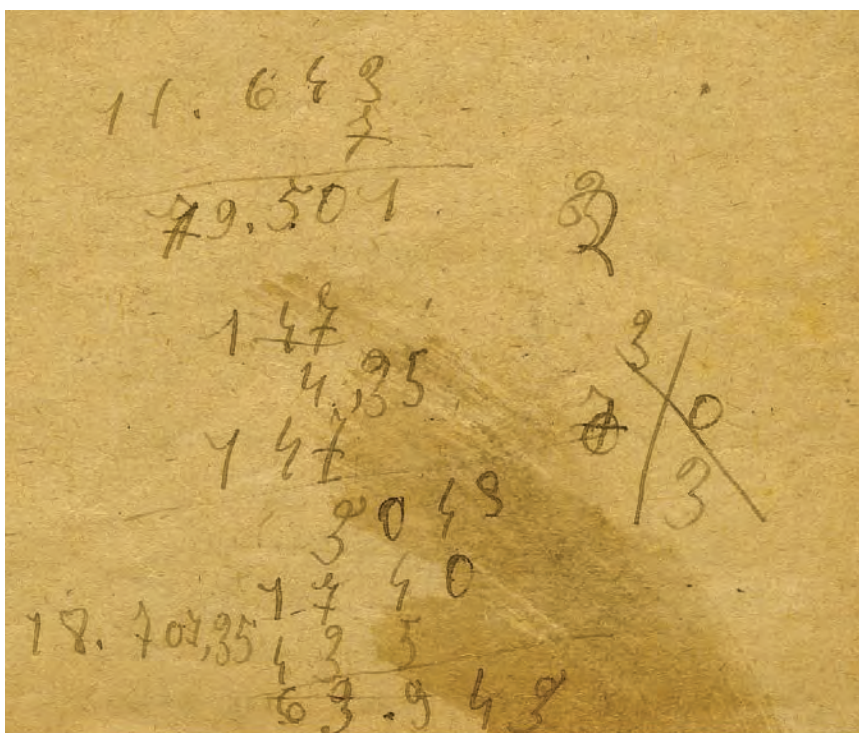 11.643
7
79.501
147
4,35
147
3
0
3
3049
1740
18.707,35
435
63.943